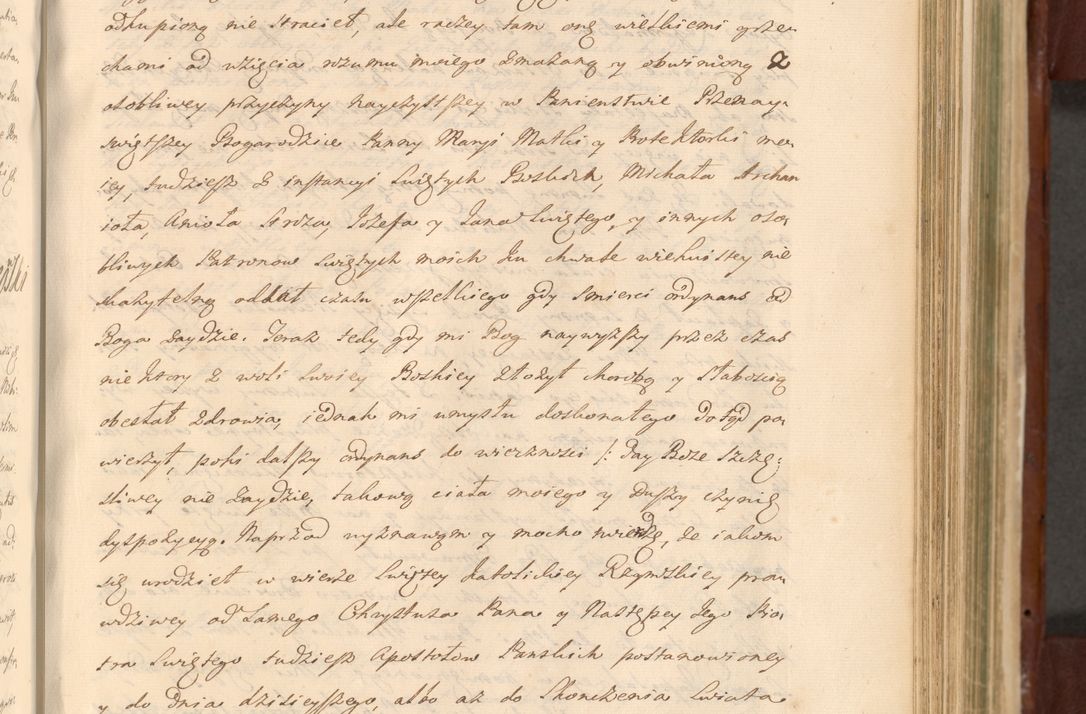 odkupioną nie stracieł, ale raczey tam onę wielkiemi grze-
chami od wzięcia rozumu moiego zmazaną y obwinioną z
osobliwey przyczyny nayczystszey w Panienstwie Przenay-
swiętszey Bogarodzice Panny Maryi Matki y Protektorki mo-
iey, tudziesz z instancyi Swiętych Boskich, Michała Archan
ioła, Anioła Stroza, Jozefa y Jana Swiętego, y innych oso-
bliwych Patronow Swiętych moich ku chwale wiekuistey nie
skazytelną oddał czasu wszelkiego gdy smierci ordynans od
Boga zaydzie. Teraz tedy gdy mi Bog naywyzszy przez czas
nie ktory z woli Swoiey Boskiey złozył chorobą y słaboscią
obesłał zdrowia, iednak mi umysłu doskonałego dotąd po-
wierzył, poki dalszy ordynans do wiecznosci /: Day Boze szczę-
sliwey nie zaydzie, takową ciała moiego y duszy czynię
dyspozycyą. Naprzod wyznawam y mocno twierdzę, ze iakom
się urodzieł w wierze Swiętey Katolickiey Rzymskiey praw-
wdziwey od Samego Chrystusa Pana y Następcy Jego Pio-
tra Swiętego tudziesz Apostołow Panskich postanowioney
y do dnia dzisieyszego, albo az do Skonczenia Swiata